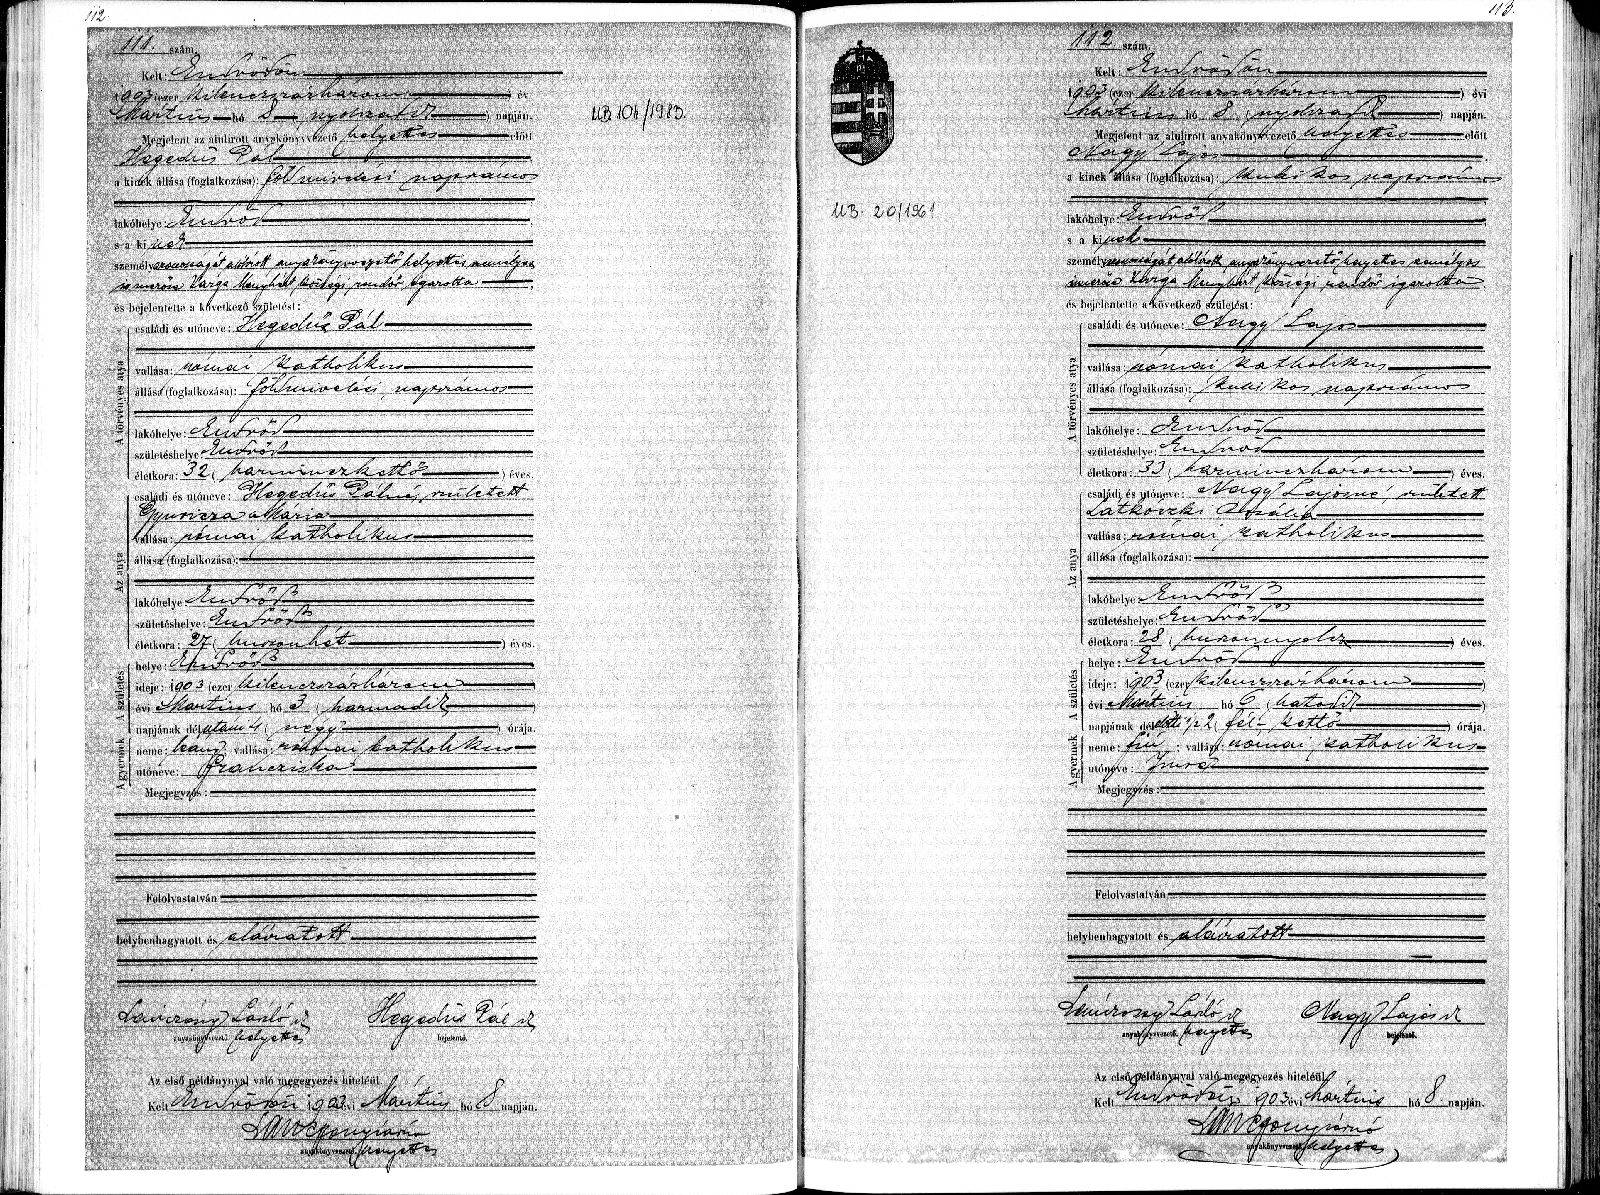 112
111. szám.
Kelt: Endrődön
1903 (ezer kilenczszázhárom ) évi
Mártius hó 8 ( nyolczadik ) napján.
Megjelent az alulírott anyakönyvvezető helyettes előtt
Hegedüs Pál
a kinek állása (foglalkozása): földmivelési napszámos
lakóhelye: Endrőd
s a kinek
személyazonosságát aláírott anyakönyvvezető helyettes személyes
ismerőse Varga Menyhért, községi rendőr igazolta
és bejelentette a következő születést:
A törvényes atya
családi és utóneve: Hegedüs Pál
vallása: római katholikus
állása (foglalkozása): földmivelési napszámos
lakóhelye: Endrőd
születéshelye: Endrőd
életkora: 32 ( harminczkettő ) éves.
Az anya
családi és utóneve: Hegedüs Pálné, született
Gyuricza Mária
vallása: római katholikus
állása (foglalkozása):
lakóhelye: Endrőd
születéshelye: Endrőd
életkora: 27 ( huszonhét ) éves.
A születés
helye: Endrőd
ideje: 1903 (ezer kilenczszázhárom )
évi Mártius hó 3 ( harmadik )
napjának délutáni 4 ( négy ) órája.
A gyermek
neme: leány; vallása: római katholikus
utóneve: Francziska
Megjegyzés:
Felolvastatván
helybenhagyatott és aláíratott
László helyettes
anyakönyvvezető.
Hegedüs Pál sk
bejelentő.
Az első példánynyal való megegyezés hiteléül
Kelt Endrődön 1903 évi Mártius hó 8 napján.
anyakönyvvezető helyettes
UB 104/1983.
113
112 szám.
UB. 20/1961
Kelt: Endrődön
1903 (ezer kilenczszázhárom ) évi
Mártius hó 8 ( nyolczadik ) napján.
Megjelent az alulírott anyakönyvvezető helyettes előtt
Nagy Lajos
a kinek állása (foglalkozása): kubikos napszámos
lakóhelye: Endrőd
s a kinek
személyazonosságát aláírott anyakönyvvezető helyettes személyes
ismerőse Varga Menyhért községi rendőr igazolta
és bejelentette a következő születést:
A törvényes atya
családi és utóneve: Nagy Lajos
vallása: római katholikus
állása (foglalkozása): kubikos napszámos
lakóhelye: Endrőd
születéshelye: Endrőd
életkora: 33 ( harminczhárom ) éves.
Az anya
családi és utóneve: Nagy Lajosné, született
Látkóczki Rozália
vallása: római katholikus
állása (foglalkozása):
lakóhelye: Endrőd
születéshelye: Endrőd
életkora: 28 ( huszonnyolcz ) éves.
A születés
helye: Endrőd
ideje: 1903 (ezer kilenczszázhárom )
évi Mártius hó 6 ( hatodik )
napjának délelőtti 1/2 2 ( fél-kettő ) órája.
A gyermek
neme: fiú; vallása: római katholikus
utóneve: Imre
Megjegyzés:
Felolvastatván
helybenhagyatott és aláíratott
László helyettes
anyakönyvvezető.
Nagy Lajos sk
bejelentő.
Az első példánynyal való megegyezés hiteléül
Kelt Endrődön 1903 évi Mártius hó 8 napján.
anyakönyvvezető helyettes